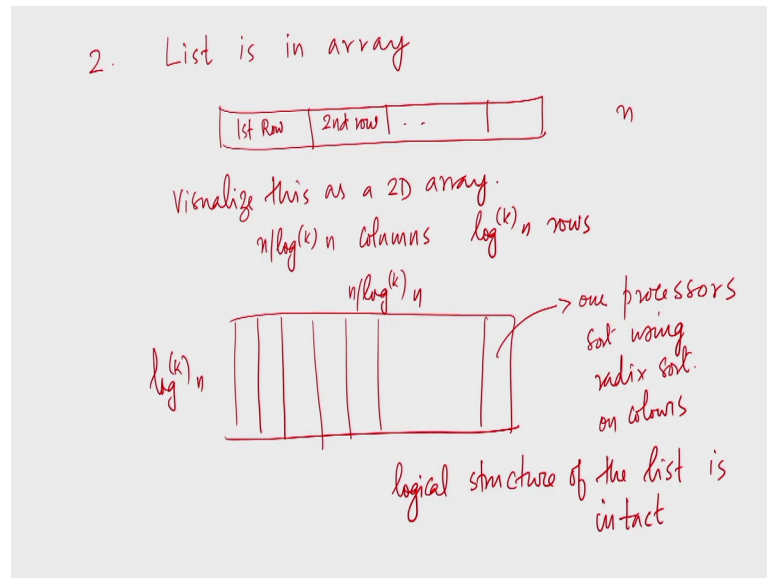 2. List is in array
1st Row 2nd row . . n
Visualize this as a 2D array.
n/log^(k) n columns log^(k) n rows
n/log^(k) n
log^(k) n
→ one processors
sort using
radix sort.
on colours
logical structure of the list is
intact